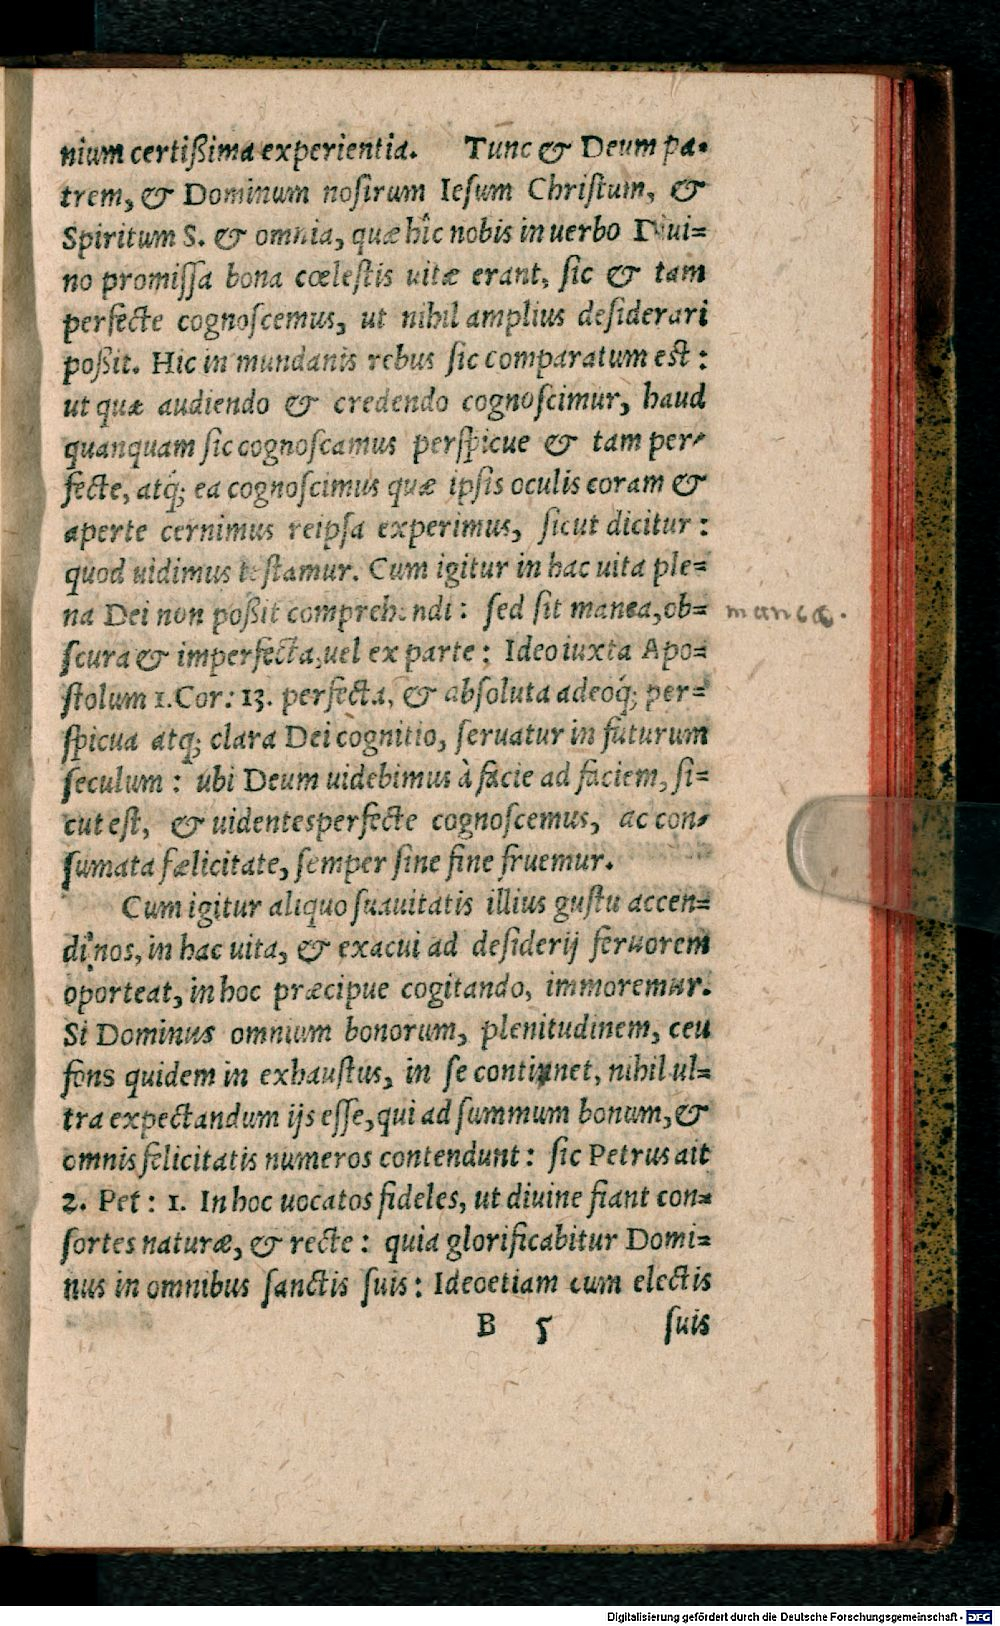 nium certißima experientia. Tunc & Deum pa-
trem, & Dominum nosirum Iesum Christum, &
Spiritum S. & omnia, quæ hîc nobis in uerbo Diui=
no promissa bona cœlestis uitæ erant, sic & tam
perfecte cognoscemus, ut nihil amplius desiderari
poßit. Hic in mundanis rebus sic comparatum est:
ut quæ audiendo & credendo cognoscimur, haud
quanquam sic cognoscamus perspicue & tam per-
fecte, atq́; ea cognoscimus quæ ipsis oculis coram &
aperte cernimus reipsa experimus, sicut dicitur:
quod uidimus testamur. Cum igitur in hac uita ple=
na Dei non poßit comprehendi: sed sit manea, ob= mancæ.
scura & imperfecta, uel ex parte: Ideo iuxta Apo=
stolum 1. Cor: 13. perfecta, & absoluta adeoq́; per=
spicua atq; clara Dei cognitio, seruatur in futurum
seculum: ubi Deum uidebimus à facie ad faciem, si=
cut est, & uidentesperfecte cognoscemus, ac con-
sumata fælicitate, semper sine fine fruemur.
Cum igitur aliquo suauitatis illius gustu accen=
di nos, in hac uita, & exacui ad desiderij feruorem
oporteat, in hoc præcipue cogitando, immoremur.
Si Dominus omnium bonorum, plenitudinem, ceu
fons quidem in exhaustus, in se continnet, nihil ul=
tra expectandum ijs esse, qui ad summum bonum, &
omnis felicitatis numeros contendunt: sic Petrus ait
2. Pet: 1. In hoc uocatos fideles, ut diuine fiant con=
sortes naturæ, & recte: quia glorificabitur Domi=
nus in omnibus sanctis suis: Ideoetiam cum electis
B 5 suis
Digitalisierung gefördert durch die Deutsche Forschungsgemeinschaft - DFG